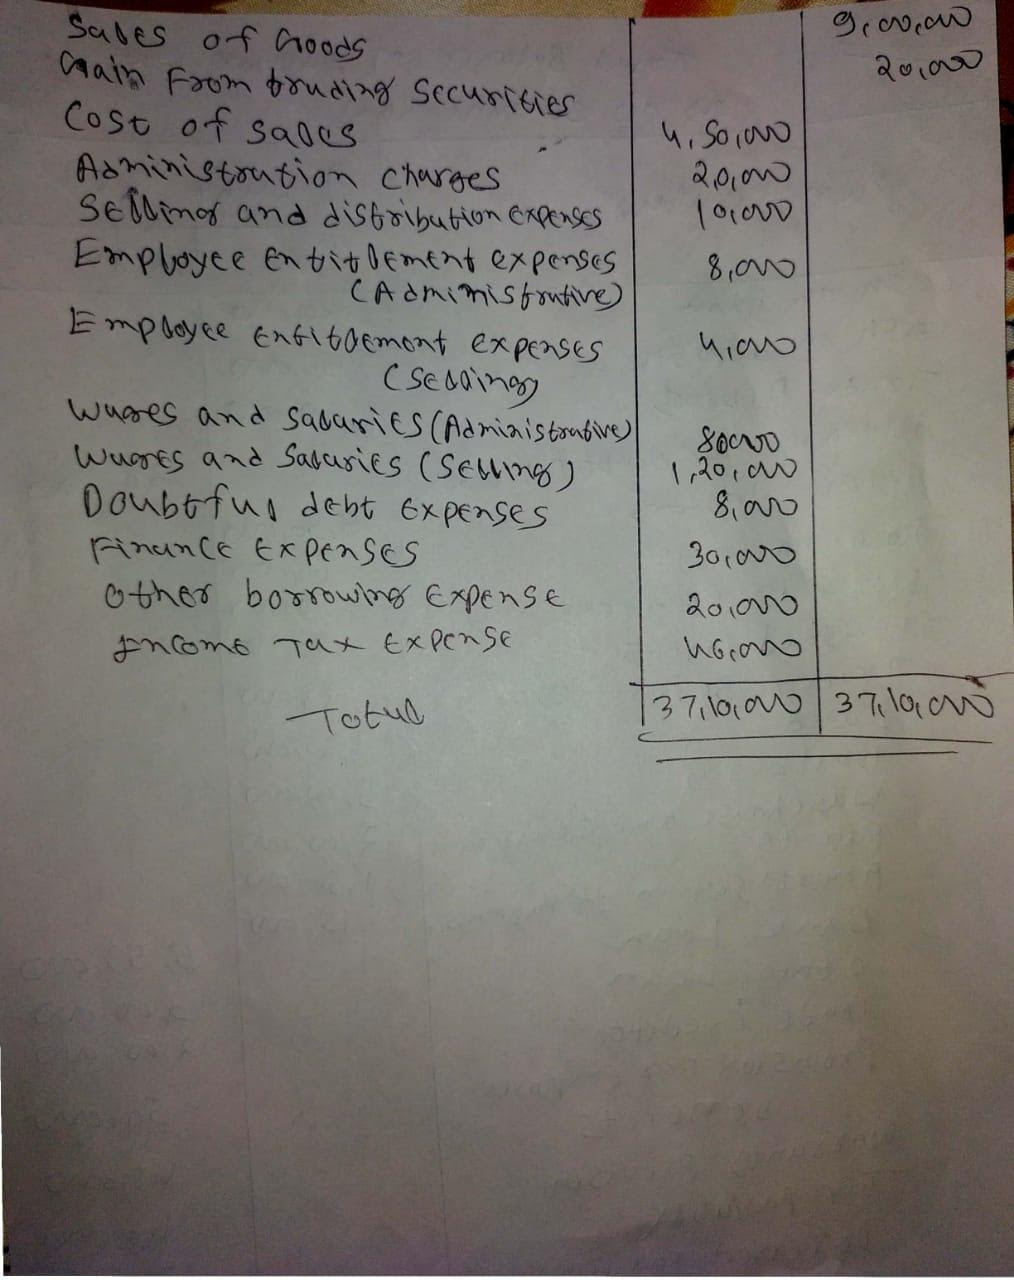 Sales of Goods 9,00,000
Gain From trading Securities 20,000
Cost of sales 4,50,000
Administration charges 20,000
Selling and distribution expenses 10,000
Employee entitlement expenses 8,000
(Administrative)
Employee entitlement expenses 4,000
(Selling)
Wages and Salaries (Administrative) 80000
Wages and Salaries (Selling) 1,20,000
Doubtful debt Expenses 8,000
Finance Expenses 30,000
Other borrowing Expense 20,000
Income Tax Expense 46,000
Total 37,10,000 37,10,000